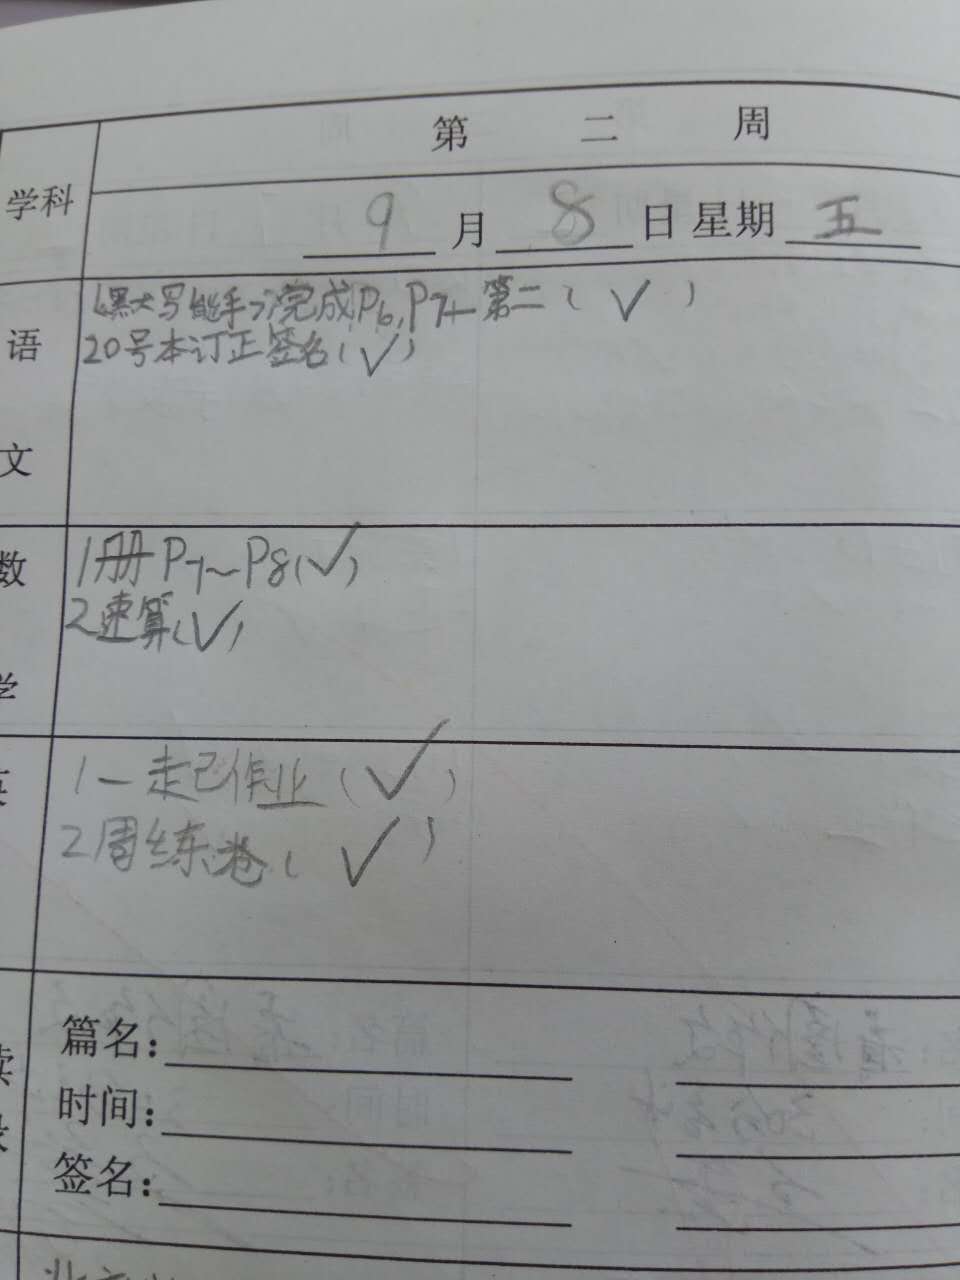 第 二 周
学科
9月8日星期五
语文
《默写能手》完成P6,P7上第二(✓)
20号本订正签名(✓)
数学
1册P7~P8(✓)
2速算(✓)
英
1一走己作业(✓)
2周练卷(✓)
读
录
篇名:
时间:
签名: